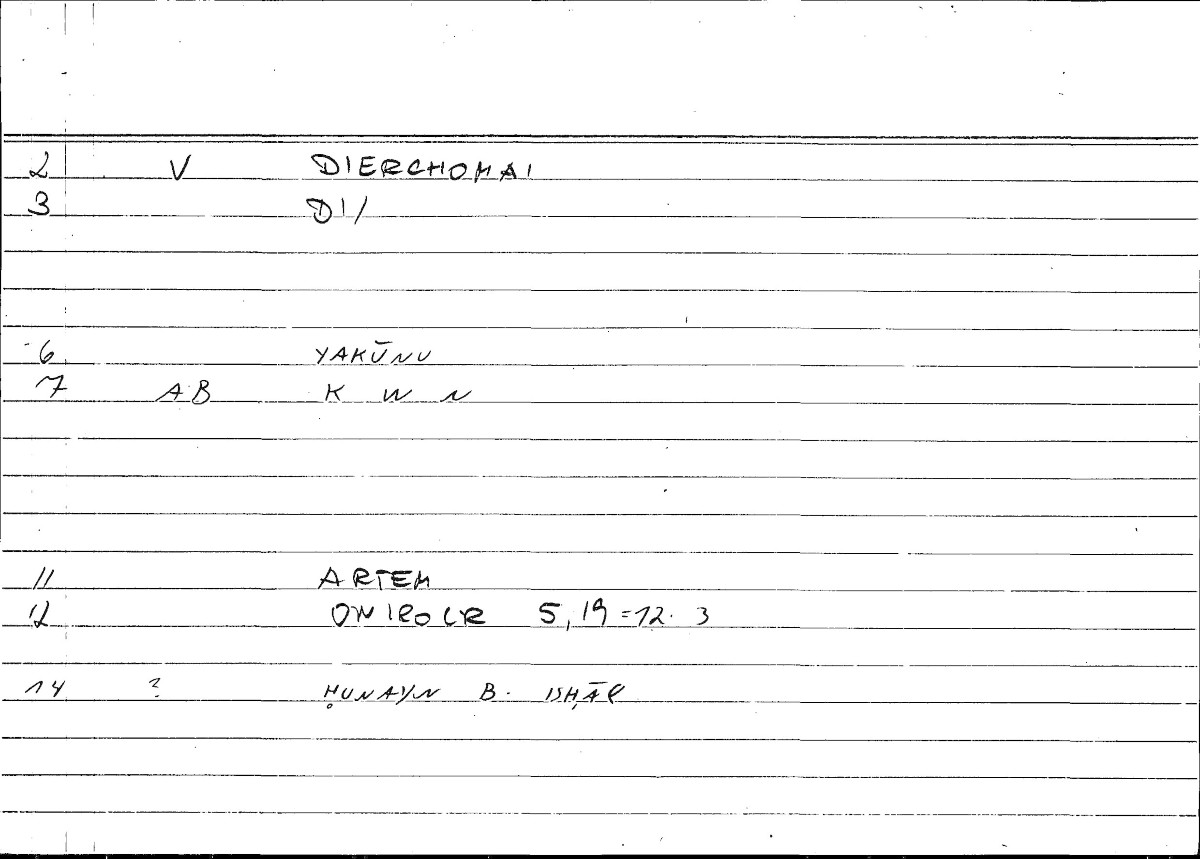 2 V DIERCHOMAI
3 DI/
6 YAKŪNU
7 AB K W N
11 ARTEM
12 ONIROCR 5,19=12.3
14 ? ḤUNAYN B. ISḤĀQ